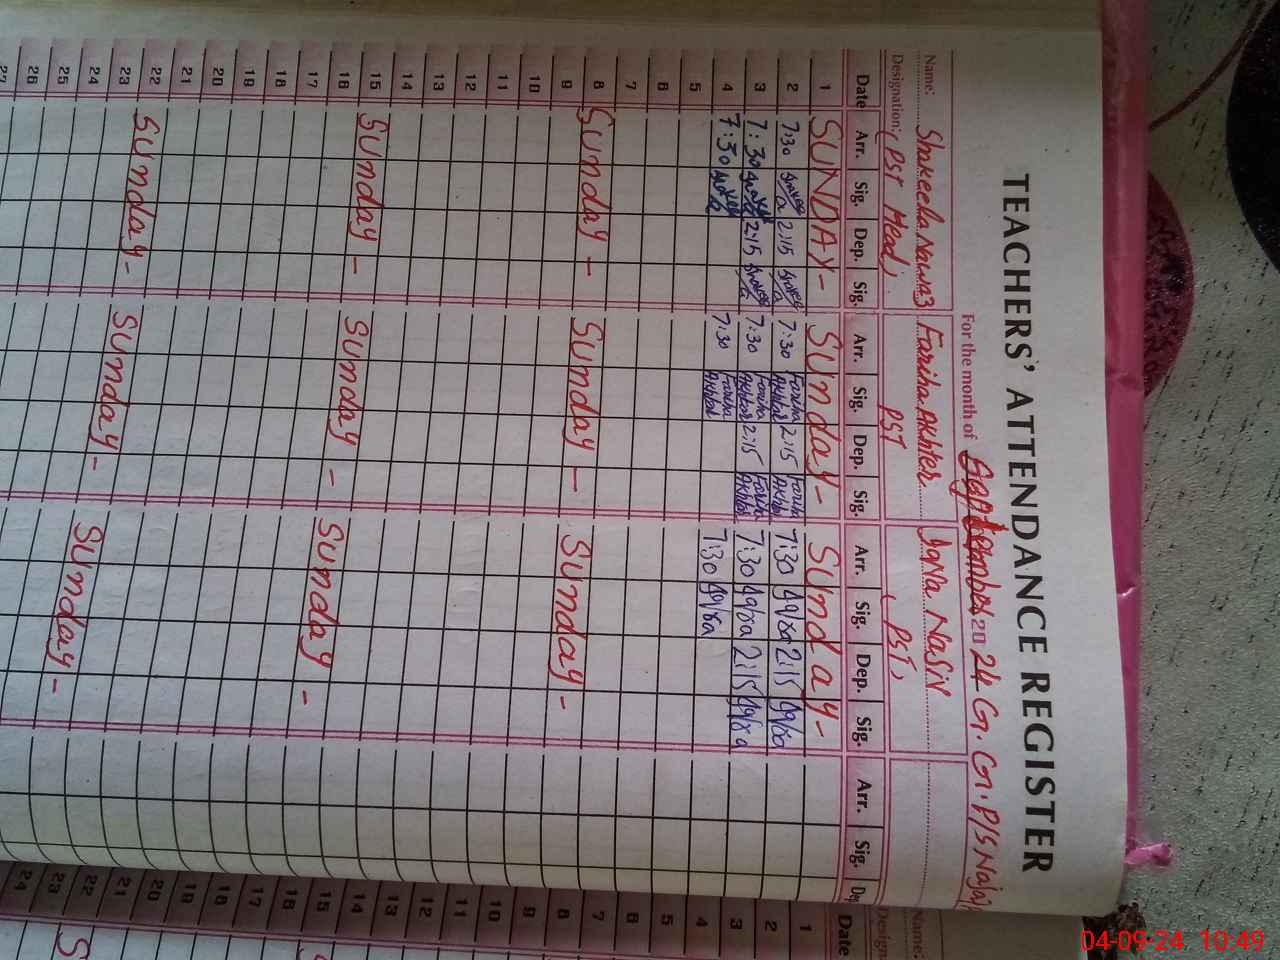 TEACHERS' ATTENDANCE REGISTER
For the month of September 20 24 G. G. P/S Najaj
Name: Shakeela Nawaz Fariha Akhter Iqra Nasir
Designation: (PST Head) PST (PST)
Date Arr. Sig. Dep. Sig. Arr. Sig. Dep. Sig. Arr. Sig. Dep. Sig. Arr. Sig. De
1 SUNDAY- Sunday- Sunday-
2 7:30 Shakeela 2:15 Shakeela 7:30 Fariha Akhter 2:15 Fariha Akhter 7:30 Iqra 2:15 Iqra
3 7:30 Shakeela 2:15 Shakeela 7:30 Fariha Akhter 2:15 Fariha Akhter 7:30 Iqra 2:15 Iqra
4 7:30 Shakeela 7:30 Fariha Akhter 7:30 Iqra
5
6
7
8 Sunday- Sunday- Sunday-
9
10
11
12
13
14
15 Sunday- Sunday- Sunday-
16
17
18
19
20
21
22 Sunday- Sunday- Sunday-
23
24
25
26
27
Name:
Design
Date
1
2
3
4
5
6
7
8
9
10
11
12
13
14
15
16
17
18
19
20
21
22
23
24
04-09-24 10:49